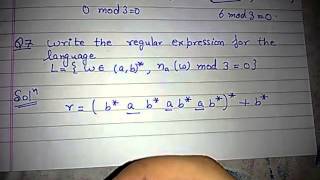 0 mod 3=0    6 mod 3=0.
Q7 Write the regular expression for the
language
L = { w ∈ (a,b)*, nₐ(w) mod 3 = 0}
Solⁿ
r = ( b* a b* a b* a b* )* + b*